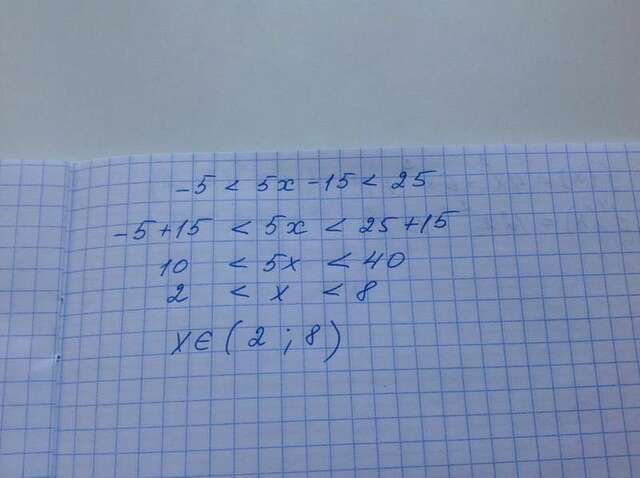 -5 < 5x - 15 < 25
-5 + 15 < 5x < 25 + 15
10 < 5x < 40
2 < x < 8
x ∈ (2 ; 8)